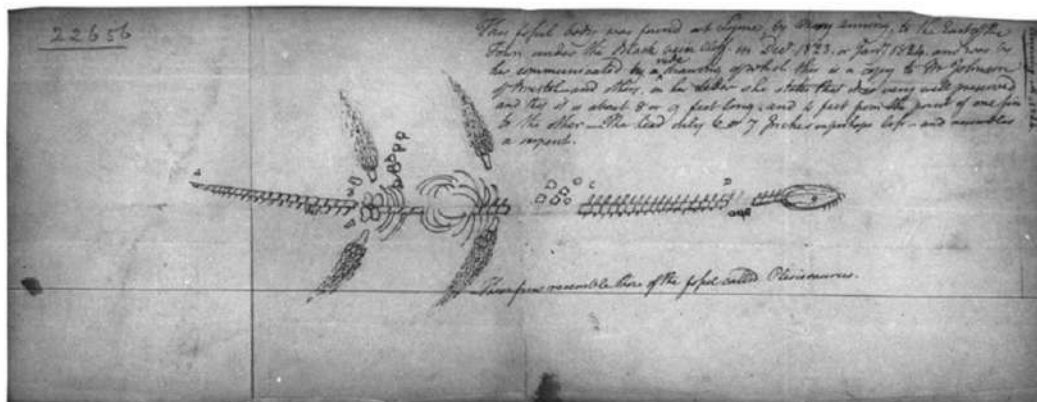 22656
This fossil body was found at Lyme, by Mary Anning, to the East of the
Town under the Black Cliff. in Decr 1823. or Janry 1824. and was by
her communicated by a rude drawing of which this is a copy to Mr Johnson
of Bristol and others. in her letter she states that it is very well preserved
and that it is about 8 or 9 feet long; and 4 feet from the point of one fin
to the other — The head only 6 or 7 Inches or perhaps less — and resembles
a serpent.
These fins resemble those of the fossil called Plesiosaurus.